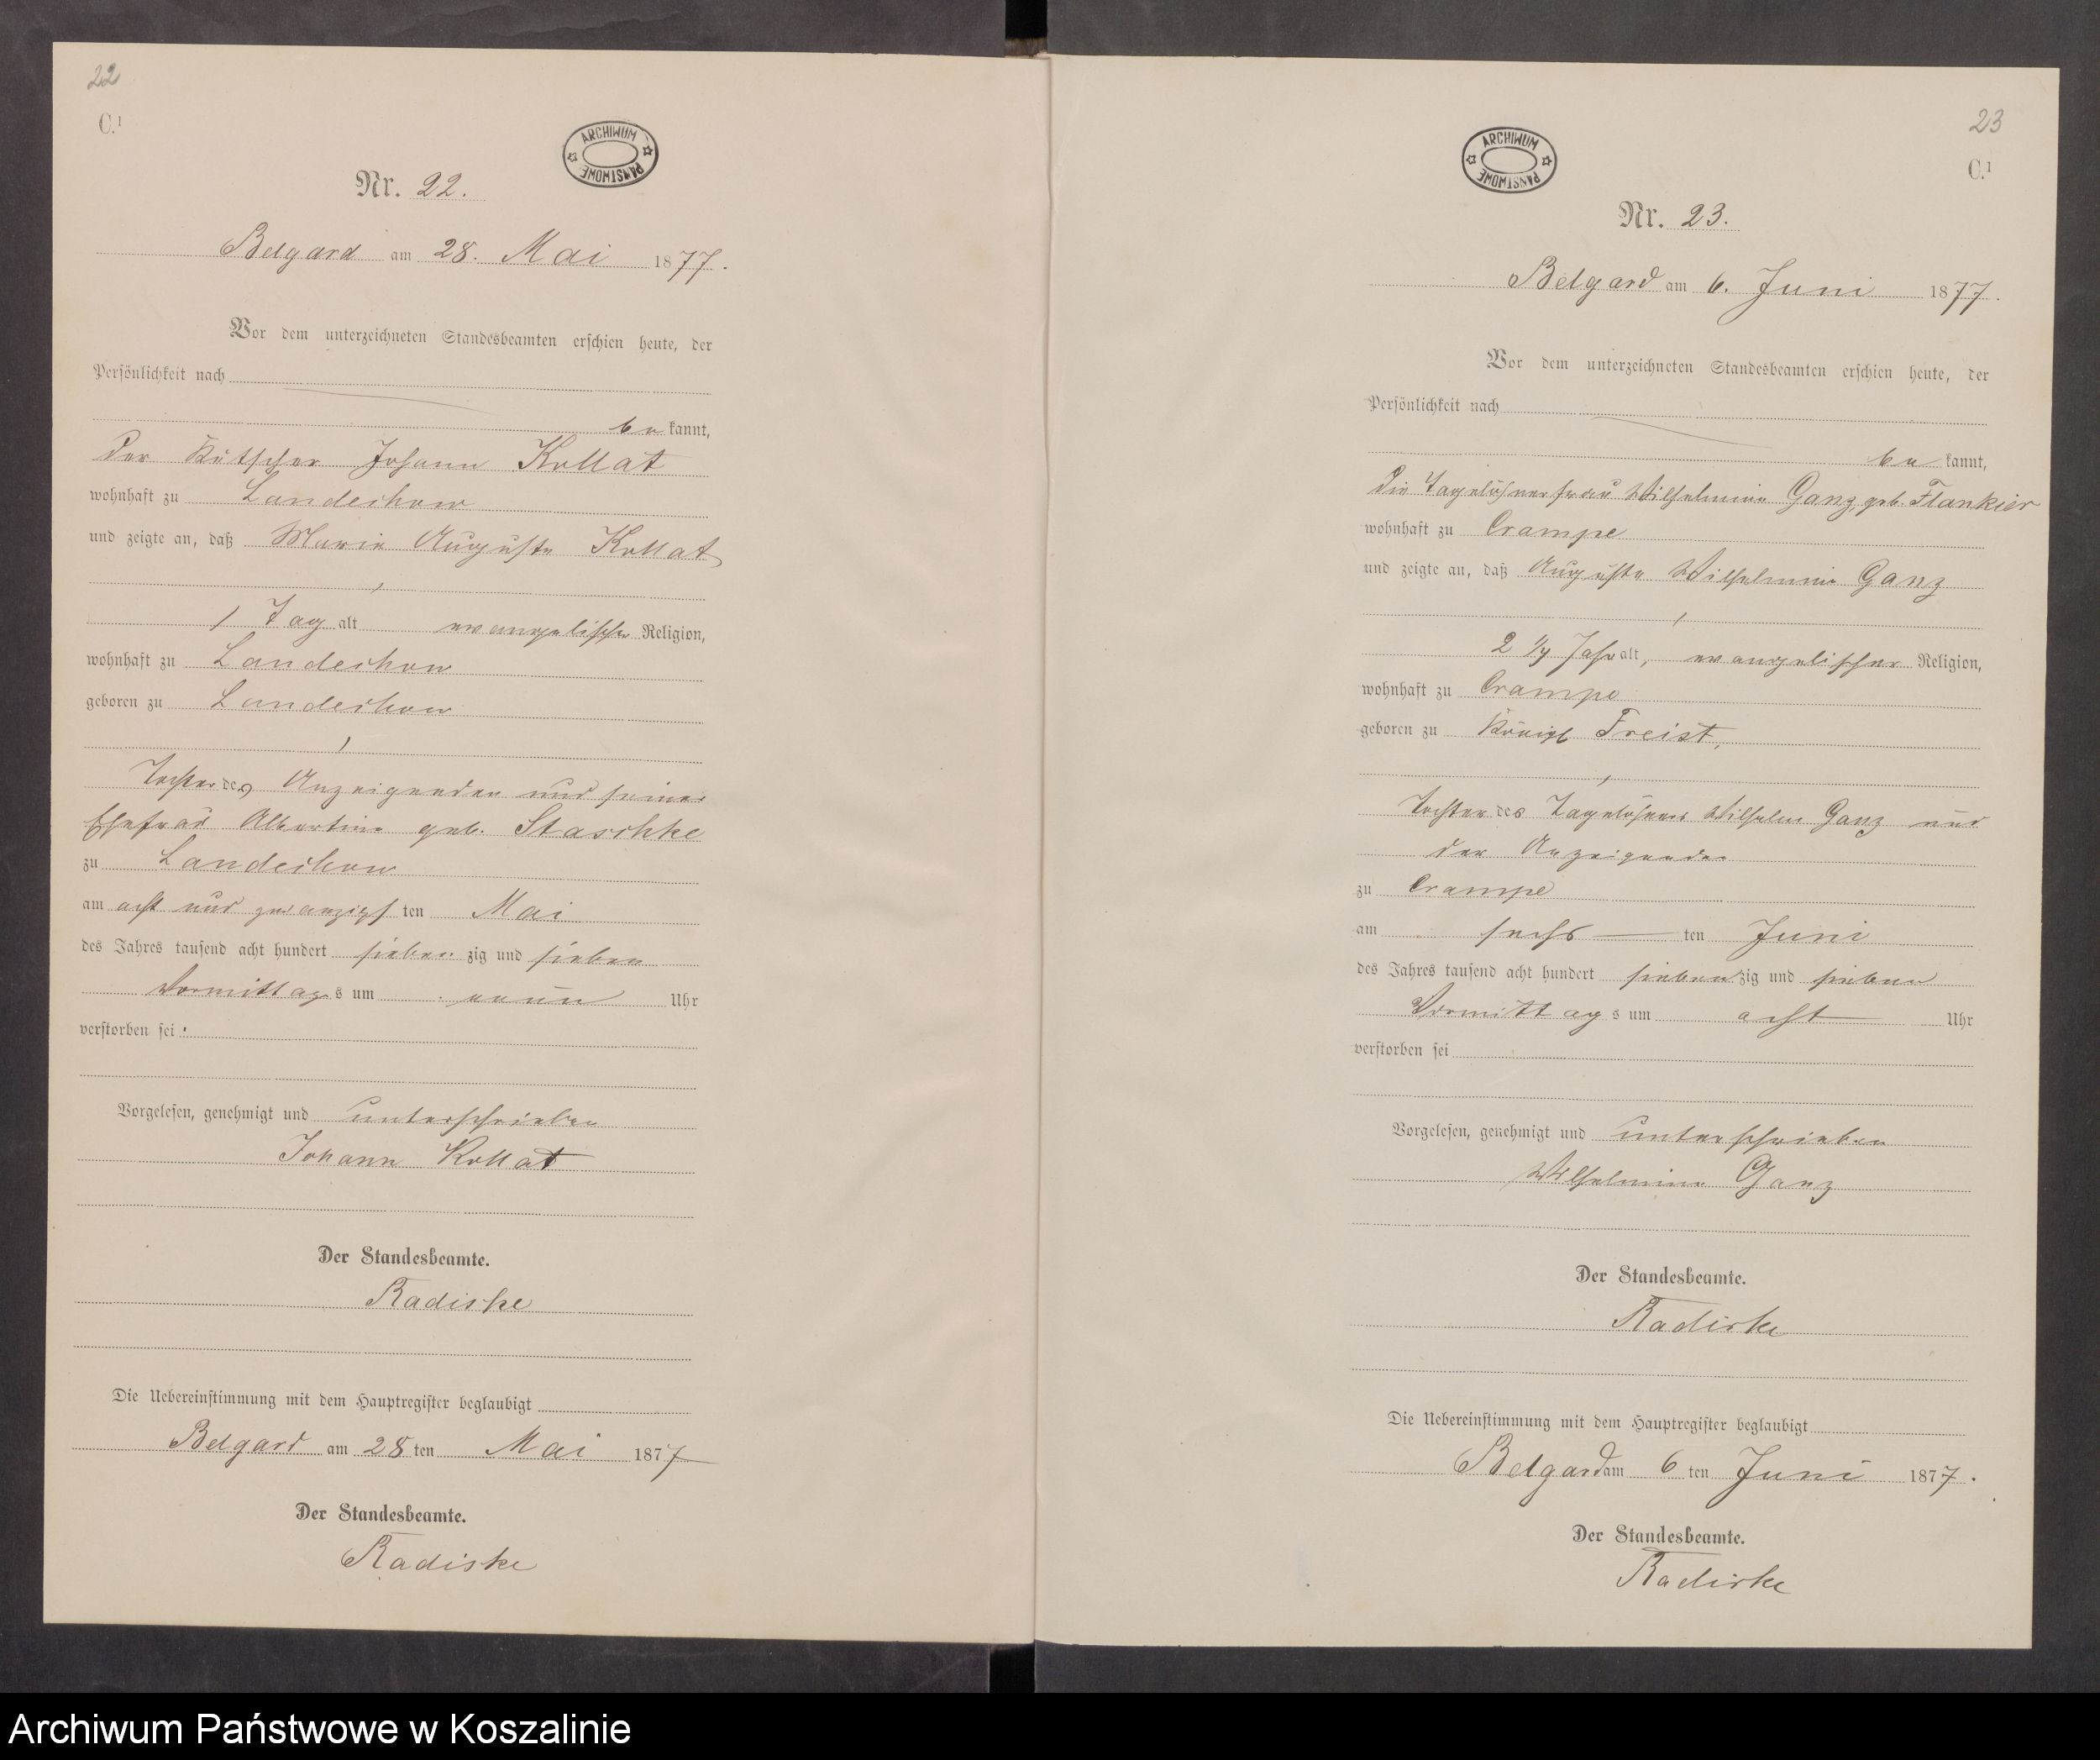 22
C.¹
ARCHIWUM PAŃSTWOWE
Nr. 22.
Belgard am 28. Mai 1877.
Vor dem unterzeichneten Standesbeamten erschien heute, der
Persönlichkeit nach
be kannt,
der Kutscher Johann Kollat
wohnhaft zu Landechow
und zeigte an, daß Marie Auguste Kollat
1 Tag alt evangelischer Religion,
wohnhaft zu Landechow
geboren zu Landechow
Tochter des Anzeigenden und seiner
Ehefrau Albertine geb. Staschke
zu Landechow
am acht und zwanzigsten Mai
des Jahres tausend acht hundert sieben zig und sieben
Vormittags um neun Uhr
verstorben sei.
Vorgelesen, genehmigt und unterschrieben
Johann Kollat
Der Standesbeamte.
Radiske
Die Uebereinstimmung mit dem Hauptregister beglaubigt
Belgard am 28 ten Mai 1877
Der Standesbeamte.
Radiske
23
C.¹
ARCHIWUM PAŃSTWOWE
Nr. 23.
Belgard am 6. Juni 1877.
Vor dem unterzeichneten Standesbeamten erschien heute, der
Persönlichkeit nach
be kannt,
die Tagelöhnerfrau Wilhelmine Ganz, geb. Flankier
wohnhaft zu Crampe
und zeigte an, daß Auguste Wilhelmine Ganz
2 1/4 Jahr alt, evangelischer Religion,
wohnhaft zu Crampe
geboren zu Königl Freist,
Tochter des Tagelöhners Wilhelm Ganz und
der Anzeigenden
zu Crampe
am sechs ten Juni
des Jahres tausend acht hundert sieben zig und sieben
Vormittags um acht Uhr
verstorben sei
Vorgelesen, genehmigt und unterschrieben
Wilhelmine Ganz
Der Standesbeamte.
Radiske
Die Uebereinstimmung mit dem Hauptregister beglaubigt
Belgard am 6 ten Juni 1877.
Der Standesbeamte.
Radiske
Archiwum Państwowe w Koszalinie